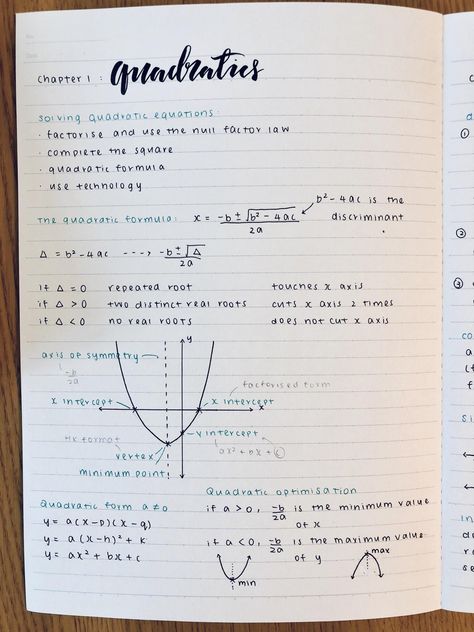 Chapter 1 : quadratics
solving quadratic equations:
· factorise and use the null factor law
· complete the square
· quadratic formula
· use technology
the quadratic formula: x = (-b ± √(b² - 4ac)) / 2a
b² - 4ac is the discriminant
Δ = b² - 4ac ---> (-b ± √Δ) / 2a
if Δ = 0 repeated root touches x axis
if Δ > 0 two distinct real roots cuts x axis 2 times
if Δ < 0 no real roots does not cut x axis
y
axis of symmetry
-b/2a
factorised form
x intercept
x intercept
x
y intercept
ax² + bx + c
vertex
minimum point
Quadratic form a≠0
y = a(x-p)(x-q)
y = a(x-h)² + k
y = ax² + bx + c
Quadratic optimisation
if a > 0, -b/2a is the minimum value
of x
if a < 0, -b/2a is the maximum value
of y
min
max